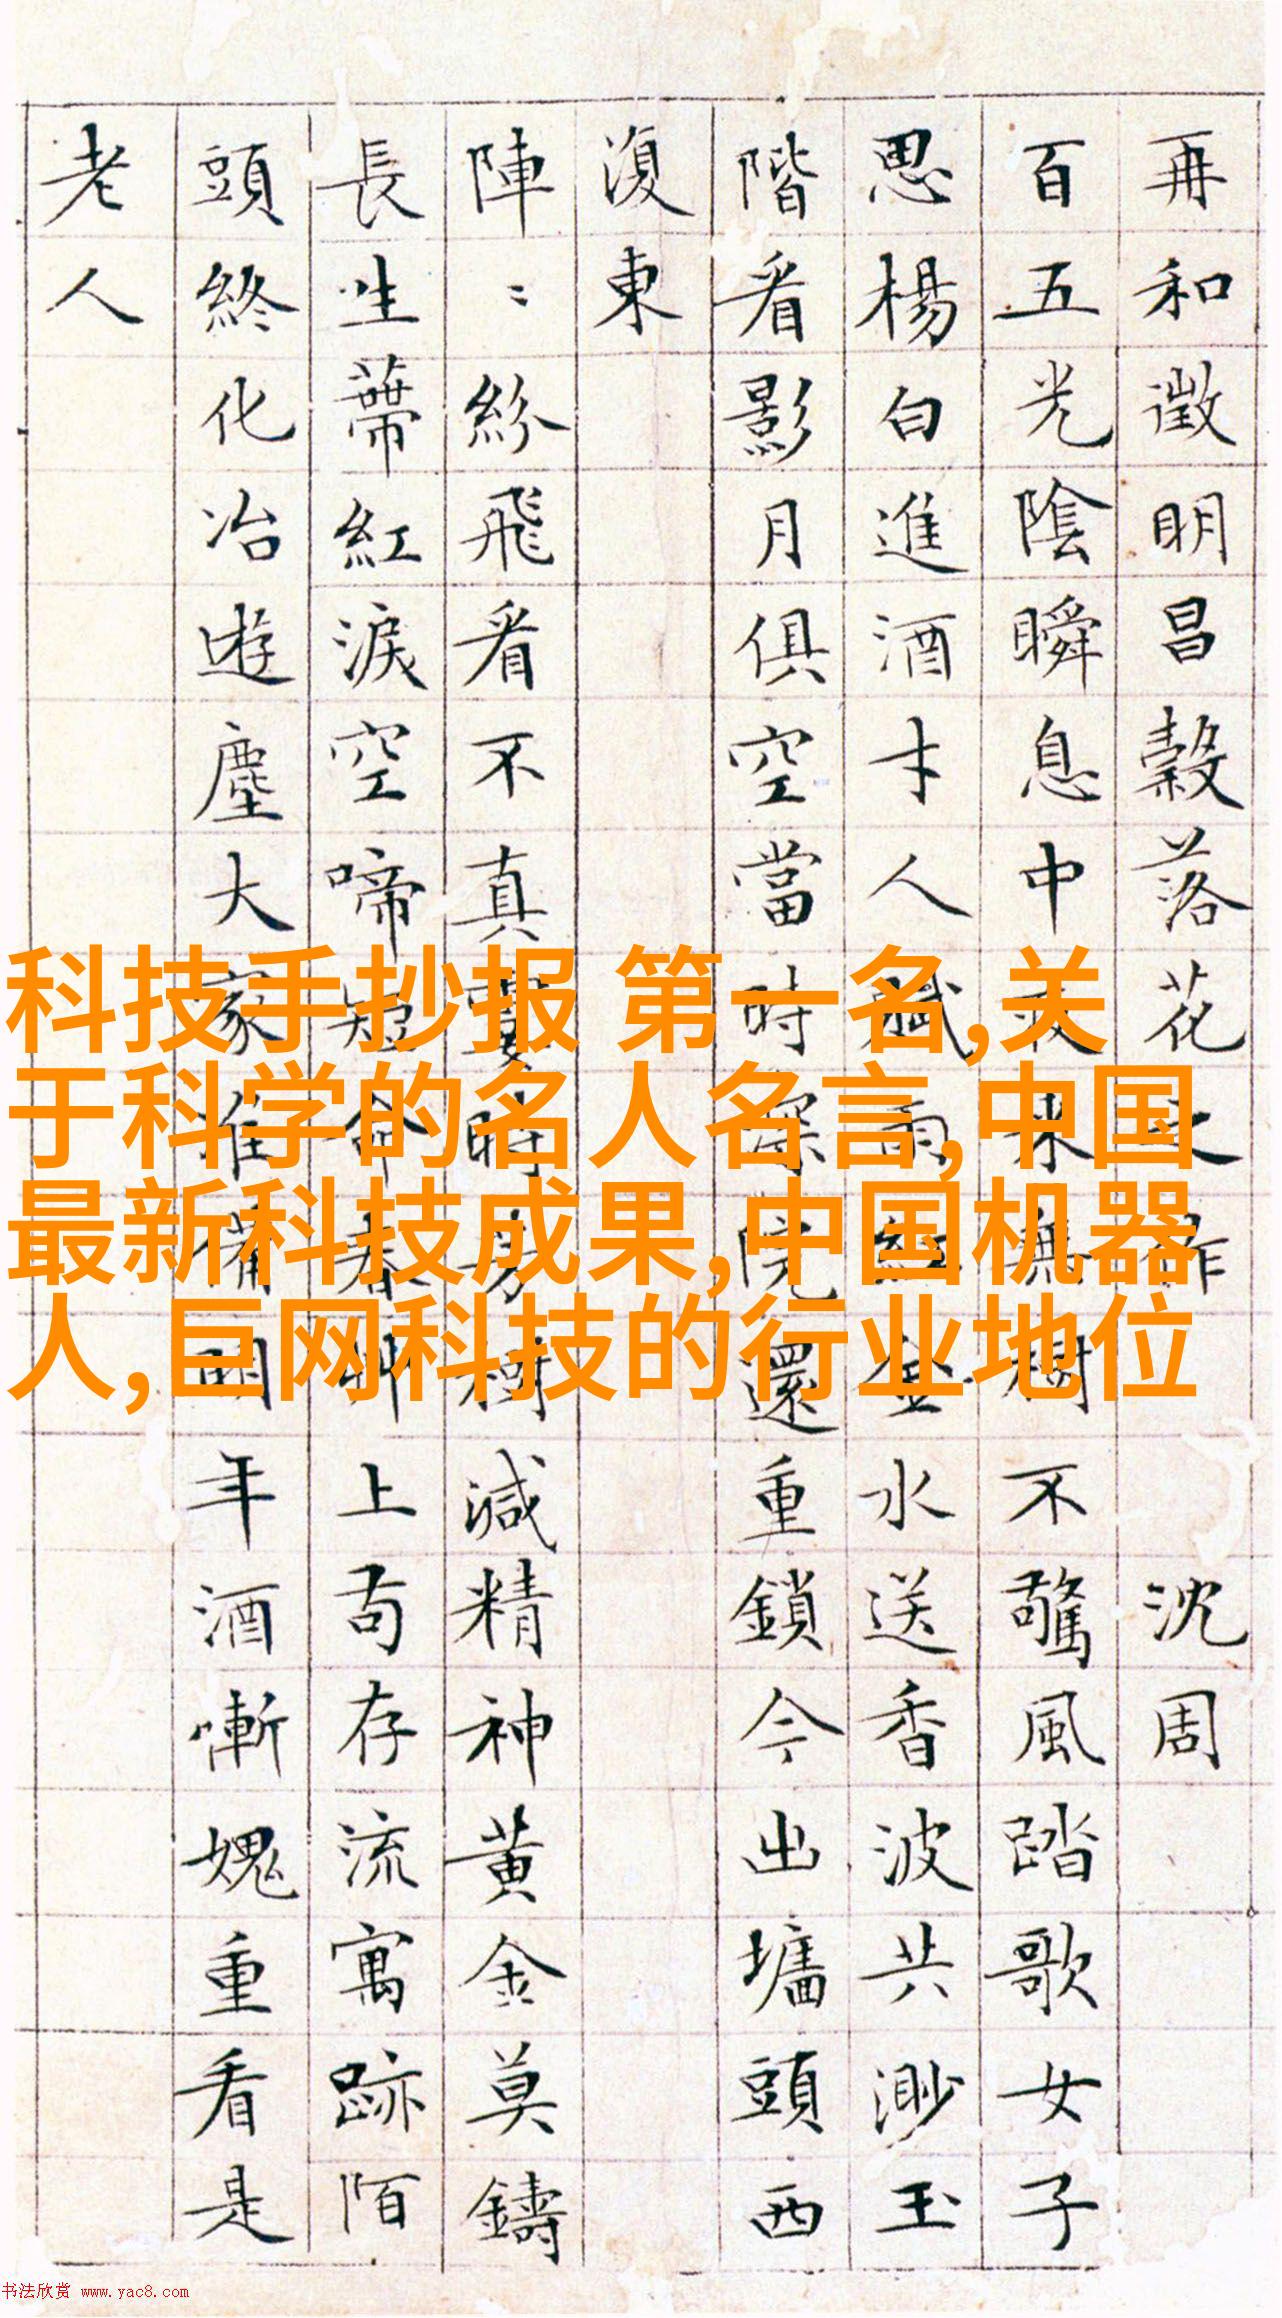 再和徵明昌穀落花之作 沈周
百五光陰瞬息中夜来無樹不驚風踏歌女子
思楊白進酒才人賦雨紅金水送香波共渺玉
階看影月俱空當時深院還重鎖今出墻頭西
復東
陣〻紛飛看不真霎時芳樹減精神黃金莫鑄
長生蔕紅淚空啼短命春艸上苟存流寓跡陌
頭終化冶遊塵大家准備明年酒慚愧重看是
老人
科技手抄报 第一名,关
于科学的名人名言,中国
最新科技成果,中国机器
人,巨网科技的行业地位
书法欣赏 www.yac8.com